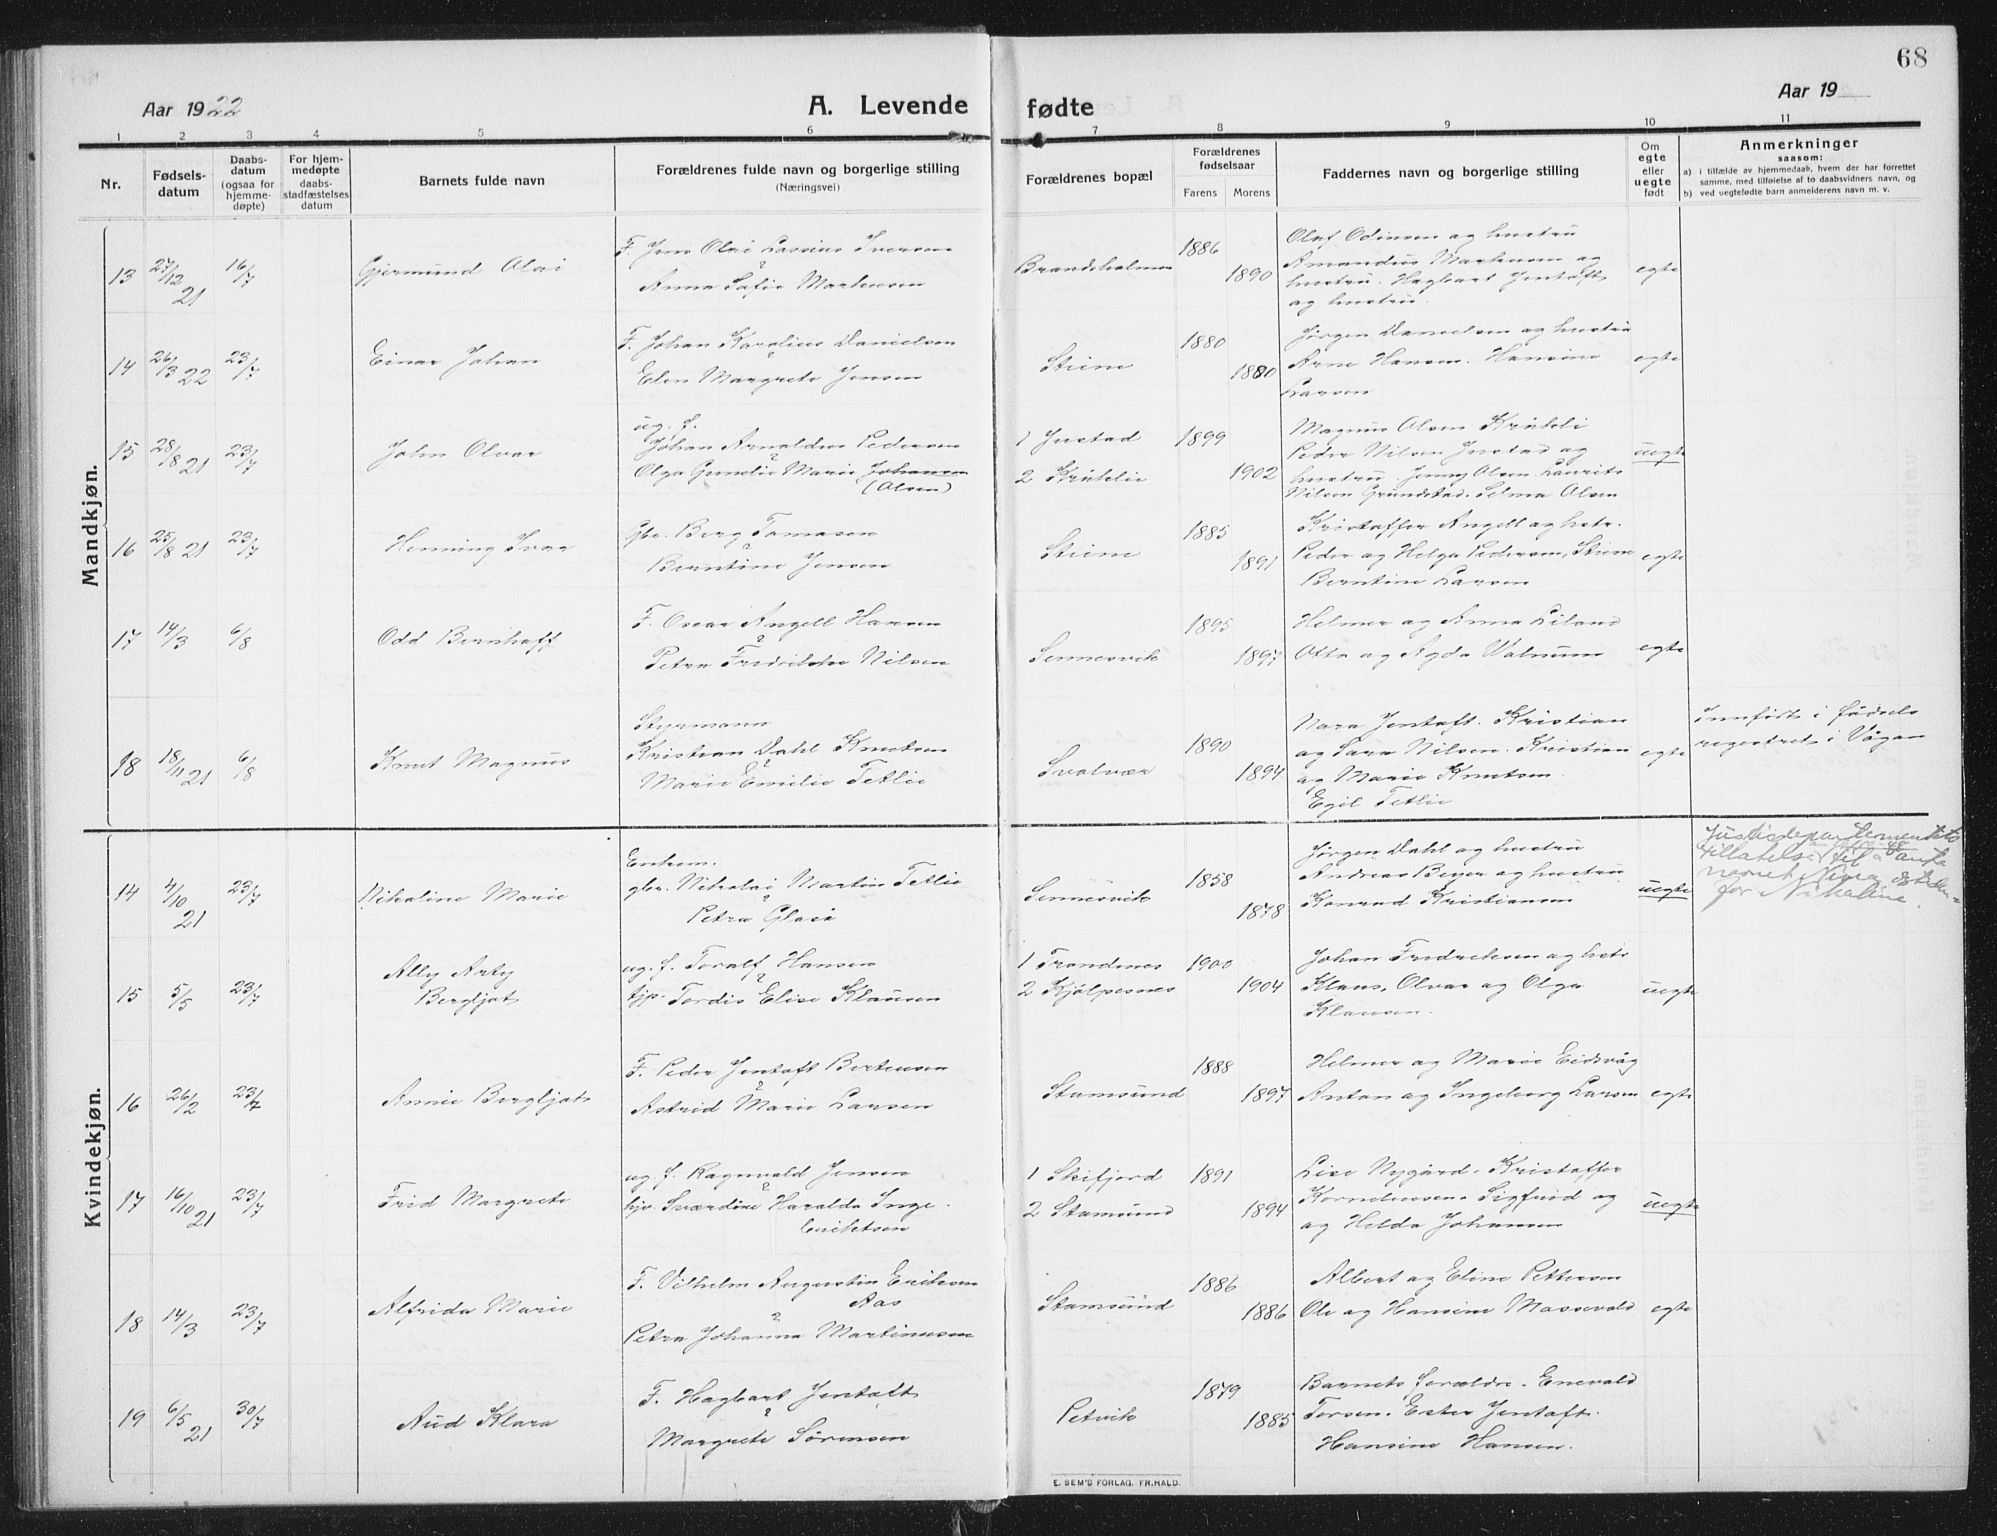 68
Aar 1922
A. Levende fødte
Aar 19
1 2 3 4 5 6 7 8 9 10 11
Nr.
Fødsels-
datum
Daabs-
datum
(ogsaa for
hjemme-
døpte)
For hjem-
medøpte
daabs-
stadfæstelses
datum
Barnets fulde navn
Forældrenes fulde navn og borgerlige stilling
(Næringsvei)
Forældrenes bopæl
Forældrenes
fødselsaar
Farens Morens
Faddernes navn og borgerlige stilling
Om
egte
eller
uegte
født
Anmerkninger
saasom:
a) i tilfælde av hjemmedaab, hvem der har forrettet
samme, med tilføielse af to daabsvidners navn, og
b) ved uegtefødte barn anmelderens navn m. v.
Mandkjøn.
13 27/12 21 16/7 Gjermund Olai
F. Jens Olai Lassius Iversen
&
Anna Sofie Markussen
Brandsholmen 1886 1890
Olaf Odinsen og hustru
Amandus Markussen og
hustru. Hagbart Jentoft
og hustru.
egte
14 26/3 22 23/7 Einar Johan
F. Johan Karolius Danielsen
&
Elen Margrete Jensen
Steine 1880 1880
Jørgen Danielsen og hustru
Arne Hansen. Hansine
Larsen
egte
15 28/8 21 23/7 John Olvar
ug. f.
Johan Arnoldus Pedersen
&
Olga Gunelie Marie Johansen
(Olsen)
1 Justad 1899
2 Strühlie 1902
Magnus Olsen
Peder Nilsen Justad og
hustru. Jenny Olsen. Laurits
Nilsen Grundstad. Selma Olsen
uegte
16 25/8 21 23/7 Henning Ivar
Gbr. Berg Tomasen
&
Berntine Jensen
Steine 1885 1891
Kristoffer Angell og hstr.
Peder og Helga Pedersen, Steine
Berntine Larsen
egte
17 14/3 6/8 Odd Bernhoff
F. Oscar Angell Hansen
&
Petra Fredrikke Nilsen
Sennesvik 1895 1897
Helmer og Anna Liland
Otto og Agda Walnum
egte
18 18/11 21 6/8 Knut Magnus
Styrmann
Kristian Dahl Knutsen
&
Marie Emilie Tetlie
Svolvær 1890 1894
Nora Jentoft. Kristian
og Sara Nilsen. Kristian
og Marie Knutsen.
Egil Tetlie
egte
Innført i fødsels
registret i Vågan
Kvindekjøn.
14 4/10 21 23/7 Nikoline Marie
Enkem.
gbr. Nikolai Martin Tetlie
&
Petra Glasø
Sennesvik 1858 1878
Jørgen Dahl og hustru
Andreas Beyer og hustru
Konrad Kristiansen
uegte
Justisdepartementets
tillatelse til å
navnet Nina isteden-
for Nikoline.
15 5/5 23/7 Ally Arty
Bergljot
ug. f. Toralf Hansen
&
tjp. Tordis Elise Klausen
1 Trondenes 1900
2 Kjølpesnes 1904
Johan Fredriksen og hstr
Klaus, Olvar og Olga
Klausen.
uegte
16 26/2 23/7 Annie Bergljot
F. Peder Jentoft Bertensen
&
Astrid Marie Larsen
Stamsund 1888 1897
Helmer og Marie Eidsvåg
Anton og Ingeborg Larsen
egte
17 16/10 21 23/7 Frid Margrete
ug. f. Ragnvald Jensen
&
hjv. Sverdine Haralda Inge-
Eriktsen
1 Skifjord 1891
2 Stamsund 1894
Lise Nygård. Kristoffer
Korneliussen. Sigfrid og
og Helda Johansen
uegte
18 14/3 23/7 Alfrida Marie
F. Vilhelm Augustin Eriksen
Aas
&
Petra Johanna Martinussen
Stamsund 1886 1886
Albert og Eline Pettersen
Ole og Hansine Massevold
egte
19 6/5 21 30/7 Aud Klara
F. Hagbart Jentoft
&
Margrete Sørensen
Petvik 1879 1885
Barnets forældre. Enevald
Torsen. Ester Jentoft.
Hansine Hansen.
E. SEM'S FORLAG. FR.HALD.